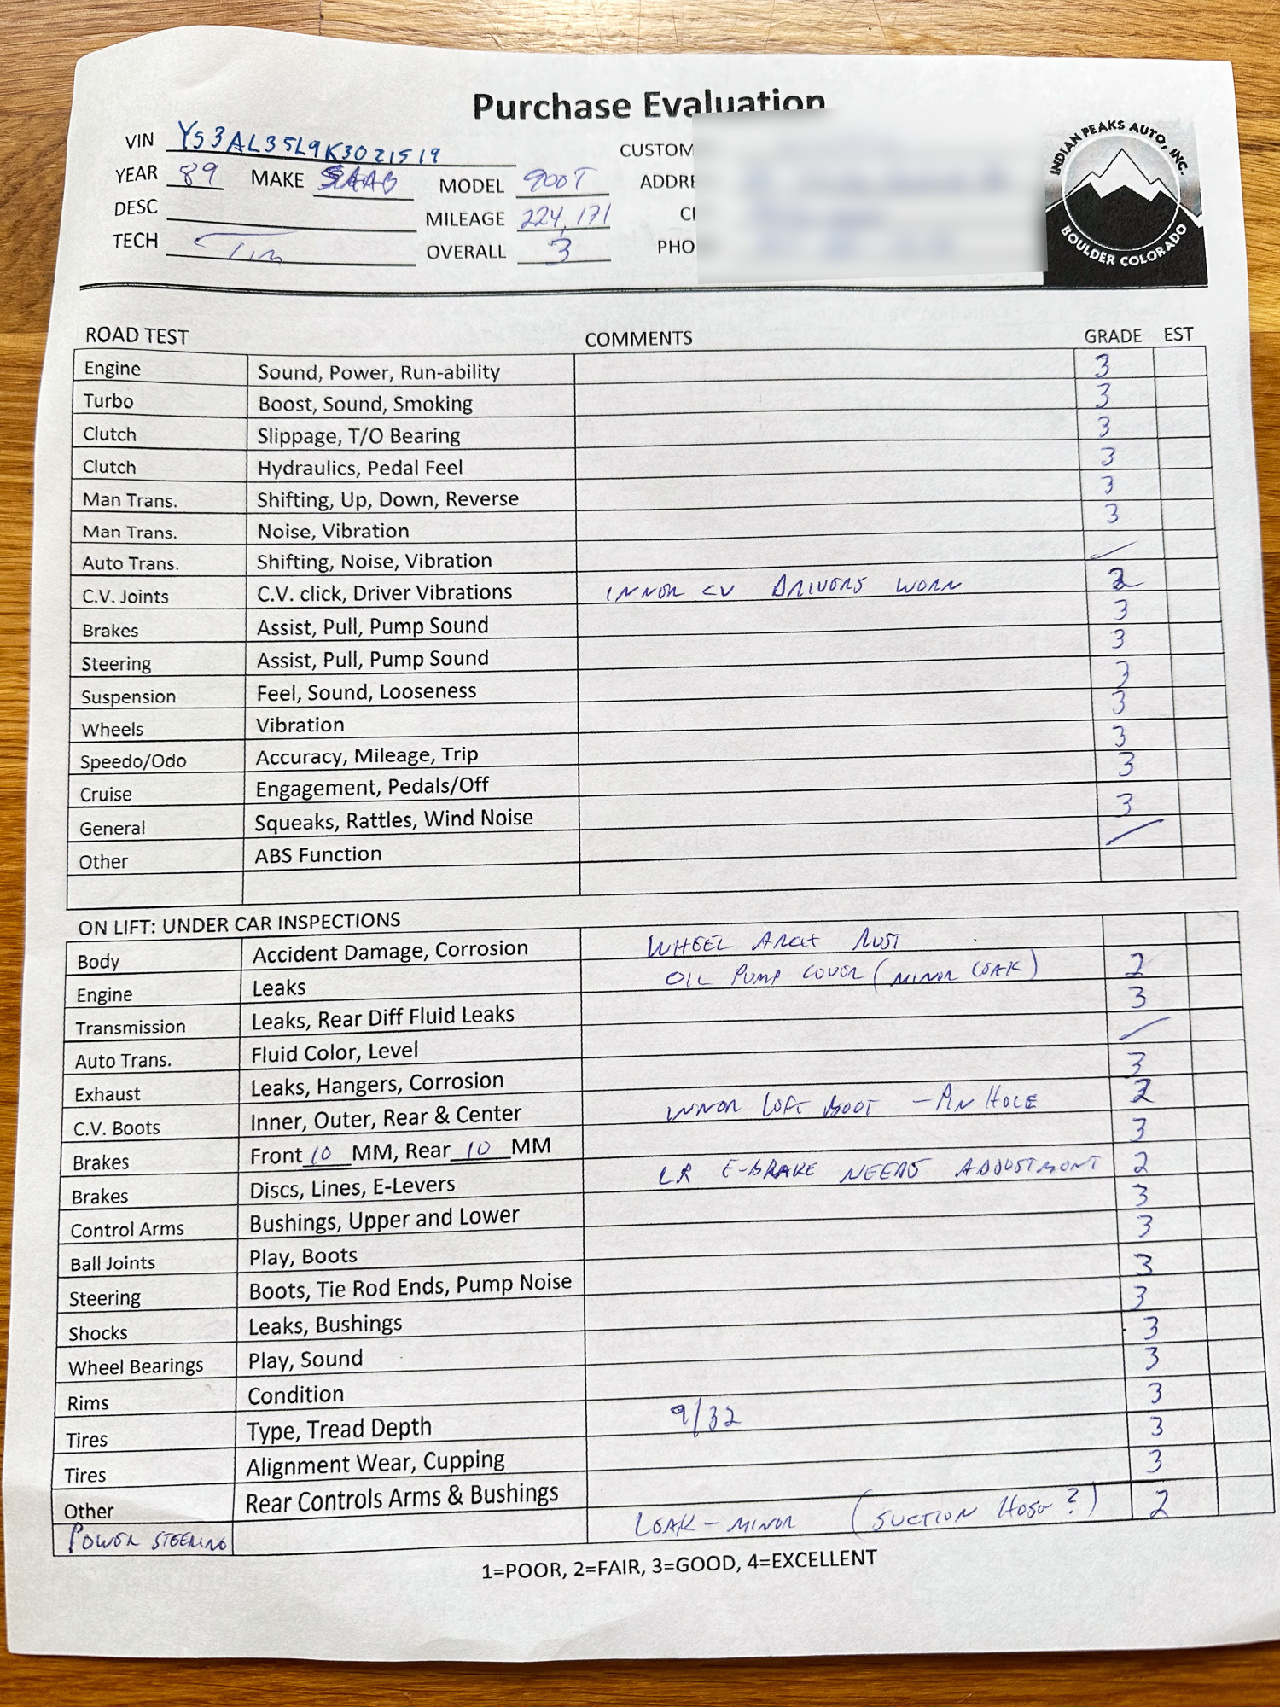 Purchase Evaluation
VIN YS3AL35L9K3021519 CUSTOM
YEAR 89 MAKE SAAB MODEL 900T ADDRE
DESC MILEAGE 224,171 CI
TECH Tim OVERALL 3 PHO
INDIAN PEAKS AUTO, INC.
BOULDER COLORADO
ROAD TEST COMMENTS GRADE EST
Engine Sound, Power, Run-ability 3
Turbo Boost, Sound, Smoking 3
Clutch Slippage, T/O Bearing 3
Clutch Hydraulics, Pedal Feel 3
Man Trans. Shifting, Up, Down, Reverse 3
Man Trans. Noise, Vibration 3
Auto Trans. Shifting, Noise, Vibration
C.V. Joints C.V. click, Driver Vibrations INNOR CV DRIVORS WORN 2
Brakes Assist, Pull, Pump Sound 3
Steering Assist, Pull, Pump Sound 3
Suspension Feel, Sound, Looseness 3
Wheels Vibration 3
Speedo/Odo Accuracy, Mileage, Trip 3
Cruise Engagement, Pedals/Off 3
General Squeaks, Rattles, Wind Noise 3
Other ABS Function
ON LIFT: UNDER CAR INSPECTIONS
Body Accident Damage, Corrosion WHEEL ARCH RUST
Engine Leaks OIL PUMP COVER (MINOR LEAK) 2
Transmission Leaks, Rear Diff Fluid Leaks 3
Auto Trans. Fluid Color, Level
Exhaust Leaks, Hangers, Corrosion 3
C.V. Boots Inner, Outer, Rear & Center INNOR LEFT BOOT - PIN HOLE 2
Brakes Front 10 MM, Rear 10 MM 3
Brakes Discs, Lines, E-Levers LR E-BRAKE NEEDS ADJUSTMONT 2
Control Arms Bushings, Upper and Lower 3
Ball Joints Play, Boots 3
Steering Boots, Tie Rod Ends, Pump Noise 3
Shocks Leaks, Bushings 3
Wheel Bearings Play, Sound 3
Rims Condition 3
Tires Type, Tread Depth 9/32 3
Tires Alignment Wear, Cupping 3
Other Rear Controls Arms & Bushings 3
POWER STEERING LEAK - MINOR (SUCTION HOSE?) 2
1=POOR, 2=FAIR, 3=GOOD, 4=EXCELLENT